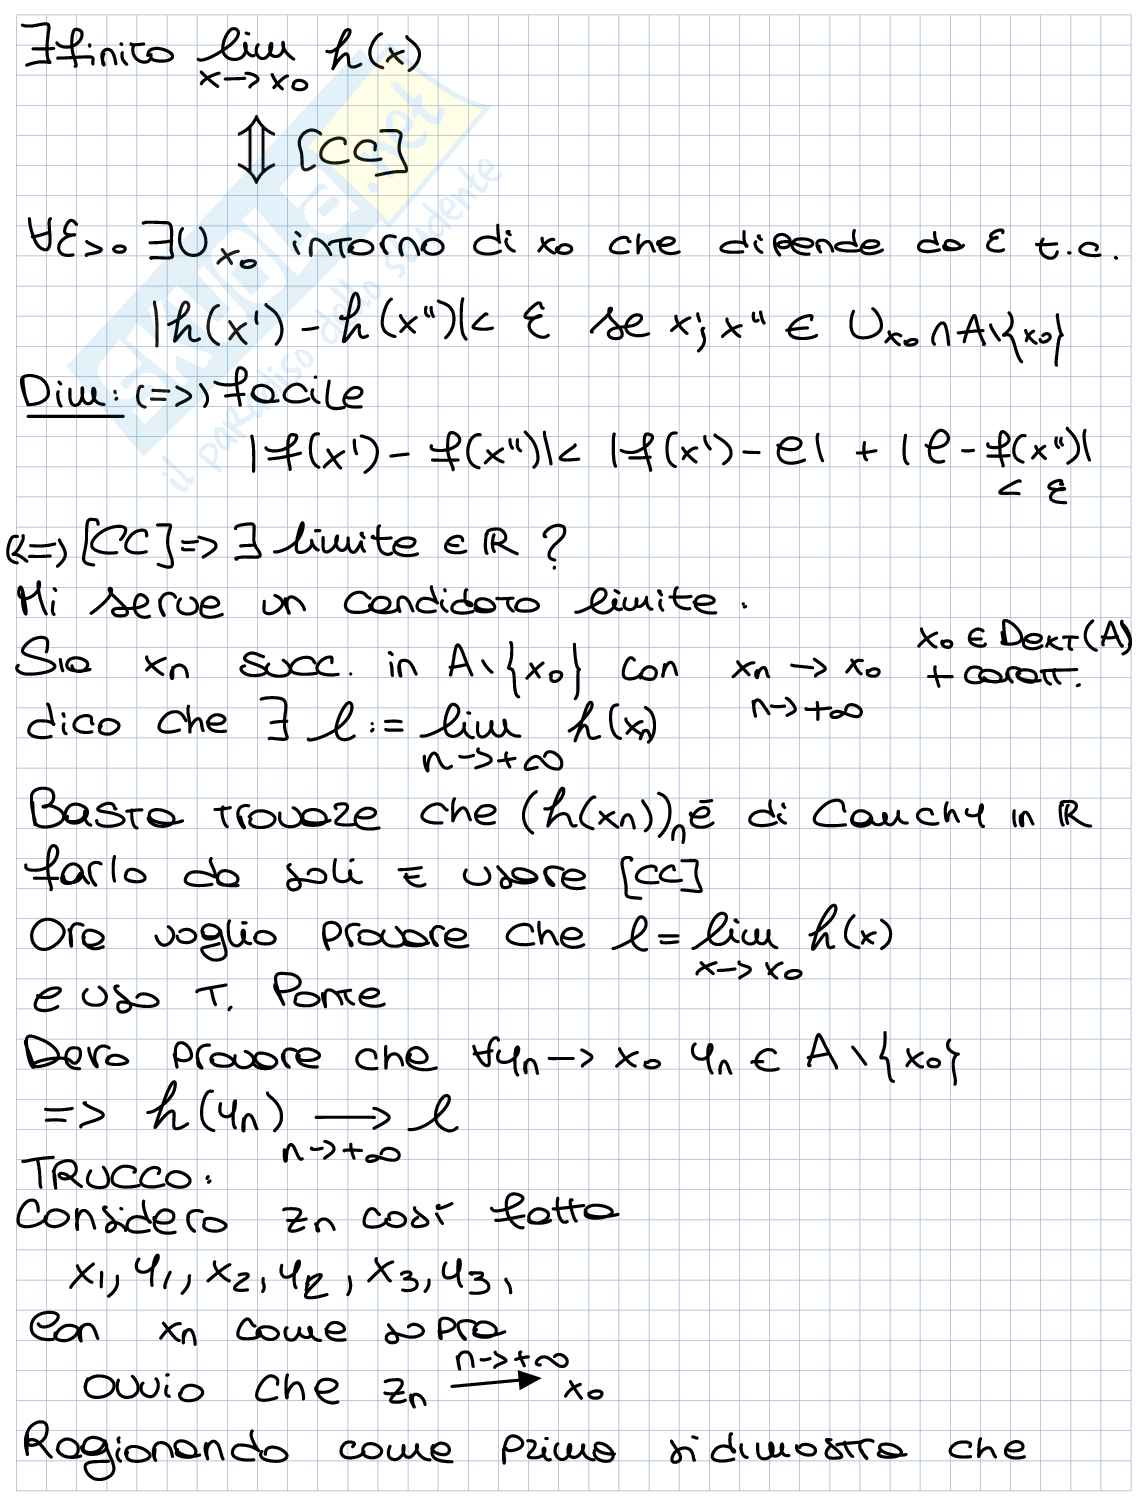 ∃ finito lim h(x)
x→x₀
⇕ [CC]
∀ε>0 ∃U_x₀ intorno di x₀ che dipende da ε t.c.
|h(x') - h(x'')| < ε se x', x'' ∈ U_x₀ ∩ A\{x₀}
Dim: (=>) facile
|f(x') - f(x'')| < |f(x') - l| + |l - f(x'')|
< ε
(<=) [CC] => ∃ limite ∈ ℝ ?
Mi serve un candidato limite.
Sia xₙ succ. in A\{x₀} con xₙ → x₀ x₀ ∈ Dert(A)
n→+∞ + caratt.
dico che ∃ l := lim h(xₙ)
n→+∞
Basta trovare che (h(xₙ))ₙ è di Cauchy in ℝ
farlo da soli e usare [CC]
Ora voglio provare che l = lim h(x)
x→x₀
e uso T. Ponte
Devo provare che ∀yₙ → x₀ yₙ ∈ A\{x₀}
=> h(yₙ) → l
n→+∞
TRUCCO:
Considero zₙ così fatta
x₁, y₁, x₂, y₂, x₃, y₃,
Con xₙ come sopra
ovvio che zₙ → x₀
n→+∞
Ragionando come prima si dimostra che
SKUOLA.net
il paradiso dello studente